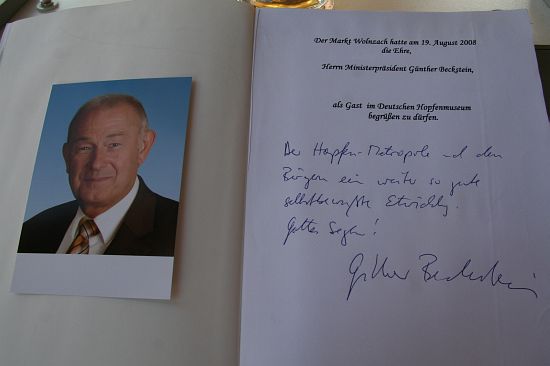 Der Markt Wolnzach hatte am 19. August 2008
die Ehre,
Herrn Ministerpräsident Günther Beckstein,
als Gast im Deutschen Hopfenmuseum
begrüßen zu dürfen.
Der Hopfen-Metropole und den
Bürgern ein weiter so gute
selbstbewußte Entwicklung.
Gottes Segen!
Günther Beckstein